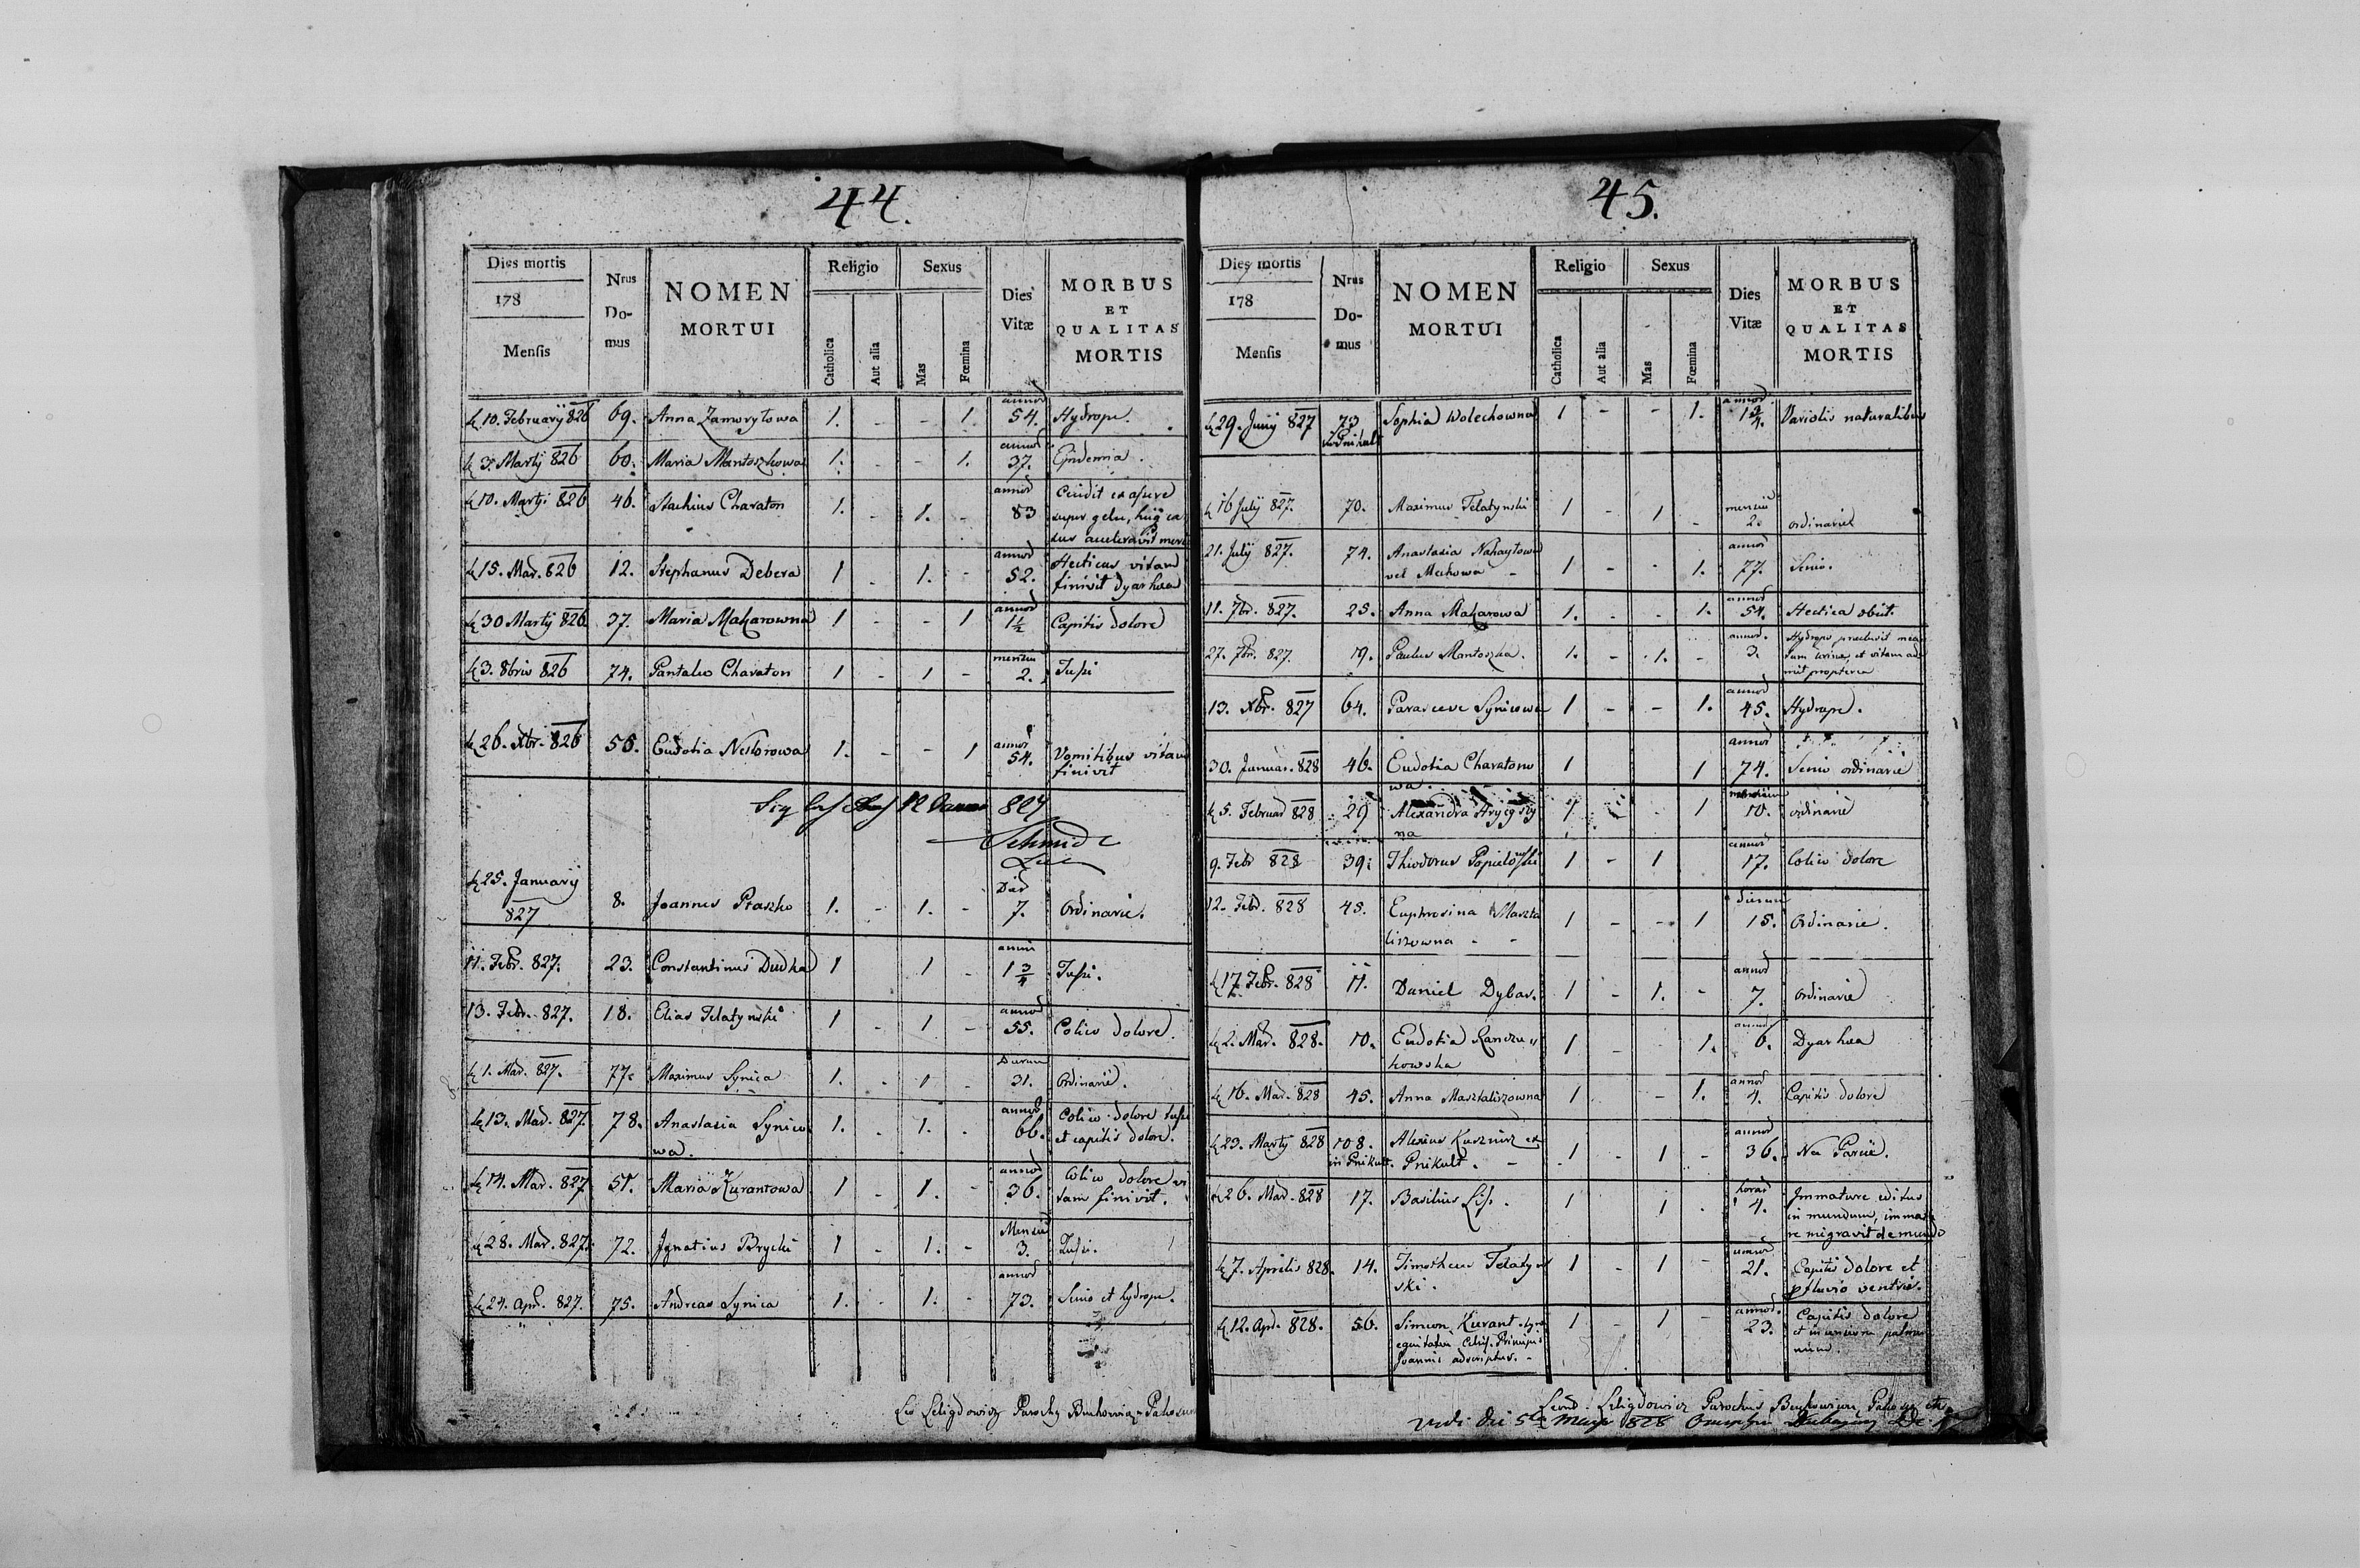 44.
Dies mortis
178
Mensis
Nrus
Do-
mus
NOMEN
MORTUI
Religio
Catholica
Aut alia
Sexus
Mas
Fœmina
Dies
Vitæ
MORBUS
ET
QUALITAS
MORTIS
10. Februarij 826 69. Anna Zamorytowa 1. - - 1. annor 54. Hydrope.
3. Martij 826 60. Maria Mantoszkowa 1. - - 1. annor 37. Epidemia.
10. Martij 826 46. Stachius Charaton 1. - 1. - annor 83
super gelu,
15. Mar. 826 12. Stephanus Debera 1 - 1. - annor 52. Hecticus vitam
finivit dyarhea
30 Martij 826 37. Maria Makarowna 1 - - 1 annor 1½ Capitis dolore
3. 8bris 826 74. Pantaleo Charaton 1 - 1 - mensiu 2. Tussi
26. Xbr. 826 56. Eudotia Nestorowa 1. - - 1 annor 54. Vomitibus vitam
finivit
827
Schmid
25. Januarij
827 8. Joannes Ptaszko 1. - 1. - Dies 7. Ordinarie.
11. Febr. 827. 23. Constantinus Dudka 1 1 - anni 1 3/4 Tussi.
13. Febr. 827. 18. Elias Telatynski 1 - 1 - annor 55. Colico dolore.
1. Mar. 827. 77. Maximus Synica 1. - 1 - Dierum 31. Ordinarie.
13. Mar. 827. 78. Anastasia Synico
wa. 1. - 1. - annor 66. Colico dolore tussi
et capitis dolore.
14. Mar. 827 51. Maria Kurantowa 1 - 1. - annor 36. Colico dolore vi
tam finivit.
28. Mar. 827. 72. Ignatius Brycki 1 - 1. - Mensiu 3. Tussi.
24. Apr. 827. 75. Andreas Synica 1. - 1. - annor 73. Senio et hydrope.
Leo Leligdowicz Parochus
45.
Dies mortis
178
Mensis
Nrus
Do-
mus
NOMEN
MORTUI
Religio
Catholica
Aut alia
Sexus
Mas
Fœmina
Dies
Vitæ
MORBUS
ET
QUALITAS
MORTIS
29. Junij 827 73 Sophia Wolechowna 1 - - 1. annor Variolis naturalibus
16 Julij 827. 70. Maximus Telatynski 1 - 1 - mensiu 2. ordinarie
21. Julij 827. 74. Anastasia Nahaytowa
vel Mechowa - 1. - - 1. annor 77. Senio.
11. 7br. 827. 25. Anna Makarowa 1. - - 1. annor 54. Hectica obiit.
27. 7br. 827. 19. Paulus Mantoszka. 1. - 1. - annor. 3. Hydrops
urinæ, et vitam
propterea
13. Xbr. 827 64. Parasceve Synicowa 1 - - 1. annor 45. Hydrope.
30. Januar. 828 46. Eudotia Charatono
wa. 1 1 annor 74. Senio ordinarie
5. Februar 828 29 Alexandra
na 1 1 10. ordinarie
9. Febr 828 39. Theodorus Popielowski 1 - 1 annor 17. Colico dolore
12. Febr. 828 45. Euphrosina Maszta
liszowna - - 1 - - 1 dierum 15. Ordinarie.
17. Febr. 828 11. Daniel Dybar. 1 - 1. - annor 7. Ordinarie
2. Mar. 828. 10. Eudotia
kowska 1 - 1. annor 6. Dyarhea
16. Mar. 828 45. Anna Masztaliszowna 1 - 1. annor 4. Capitis dolore
23. Martij 828 108. Alexius Kusznirz ex
in Prikult. Prikult. - 1 - 1 - annor 36.
26. Mar. 828 17. Basilius Lis. 1 1 - horas 4. Immature editus
in mundum, immatu
re migravit de mundo
7. Aprilis 828. 14. Timotheus Telatyn
ski. 1 - 1 - annor 21. Capitis dolore et
fluvio ventris.
12. Apr. 828. 56. Simeon Kurant
Principis
Joannis adscriptus. - 1 - 1 - annor. 23. Capitis dolore
et
Leligdowicz Parochus
Vidi die 5ta Maji 1828